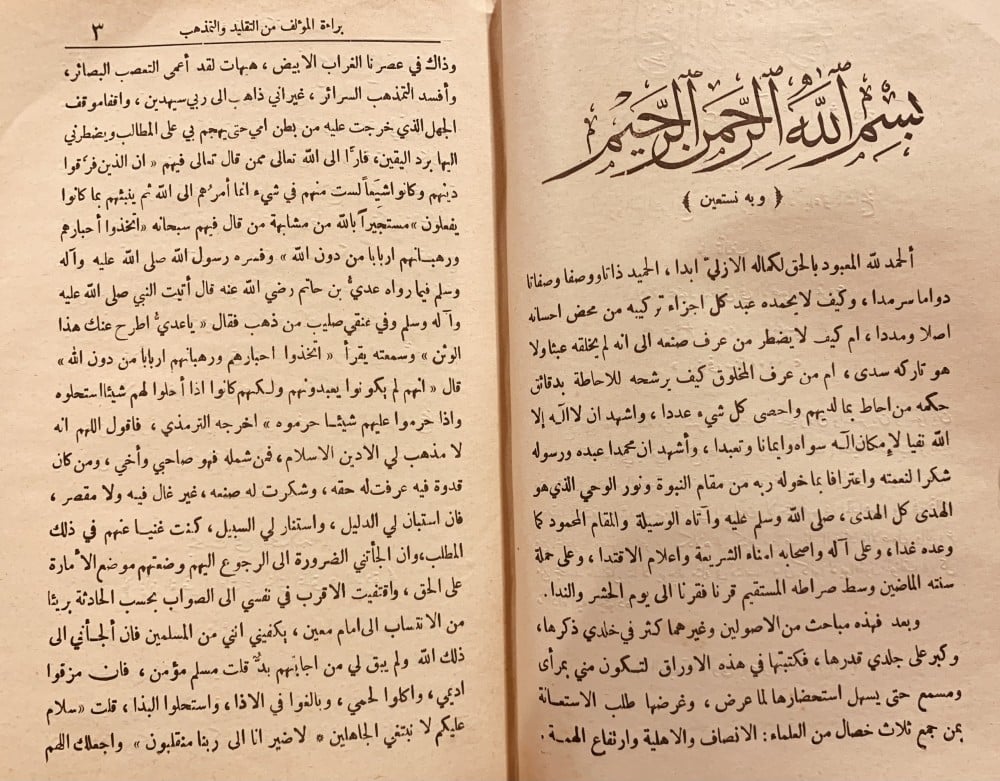 بسم الله الرحمن الرحيم
﴿ وبه نستعين ﴾
ألحمد لله المعبود بالحق لكماله الازليّ ابدا ، الحميد ذاتا ووصفا وصفاتا
دواما سرمدا ، وكيف لا يحمده عبد كل اجزاء تركيبه من محض احسانه
اصلا ومددا ، ام كيف لا يضطر من عرف صنعه الى انه لم يخلقه عبثا ولا
هو تاركه سدى ، ام من عرف المخلوق كيف يرشحه للاحاطة بدقائق
حكمه من احاط بما لديهم واحصى كل شيء عددا ، واشهد ان لا اله إلا
الله نفيا لإمكان اله سواه وايمانا وتعبدا ، وأشهد ان محمدا عبده ورسوله
شكرا لنعمته واعترافا بما خوله ربه من مقام النبوة ونور الوحي الذي هو
الهدى كل الهدى ، صلى الله وسلم عليه وآتاه الوسيلة والمقام المحمود كما
وعده غدا ، وعلى آله واصحابه امناء الشريعة واعلام الاقتدا ، وعلى حملة
سنته الماضين وسط صراطه المستقيم قرنا فقرنا الى يوم الحشر والندا .
وبعد فهذه مباحث من الاصولين وغيرهما كثر في خلدي ذكرها ،
وكبر على جلدي قدرها ، فكتبتها في هذه الاوراق لتكون مني بمرأى
ومسمع حتى يسهل استحضارها لما عرض ، وغرضها طلب الاستعانة
بمن جمع ثلاث خصال من العلماء : الانصاف والاهلية وارتفاع الهمة .
براءة المؤلف من التقليد والتمذهب ٣
وذاك في عصرنا الغراب الابيض ، هيهات لقد أعمى التعصب البصائر ،
وأفسد التمذهب السرائر ، غير اني ذاهب الى ربي سيهدين ، واقفا موقف
الجهل الذي خرجت عليه من بطن امي حتى يهجم بي على المطالب ويضطرني
اليها برد اليقين ، فارًّا الى الله تعالى ممن قال تعالى فيهم « ان الذين فرّقوا
دينهم وكانوا شيَعاً لست منهم في شيء انما أمرُهم الى الله ثم ينبئهم بما كانوا
يفعلون » مستجيراً بالله من مشابهة من قال فيهم سبحانه « اتخذوا أحبارهم
ورهبانهم اربابا من دون الله » وفسره رسول الله صلى الله عليه وآله
وسلم فيما رواه عديُّ بن حاتم رضي الله عنه قال أتيت النبي صلى الله عليه
وآله وسلم وفي عنقي صليب من ذهب فقال « يا عديُّ اطرح عنك هذا
الوثن » وسمعته يقرأ « اتخذوا احبارهم ورهبانهم اربابا من دون الله »
قال « انهم لم يكونوا يعبدونهم ولكنهم كانوا اذا أحلوا لهم شيئا استحلوه
واذا حرموا عليهم شيئا حرموه » اخرجه الترمذي ، فاقول اللهم انه
لا مذهب لي الا دين الاسلام ، فمن شمله فهو صاحبي وأخي ، ومن كان
قدوة فيه عرفت له حقه ، وشكرت له صنعه ، غير غال فيه ولا مقصر ،
فان استبان لي الدليل ، واستنار لي السبيل ، كنت غنيا عنهم في ذلك
المطلب ، وان الجأتني الضرورة الى الرجوع اليهم وضعتهم موضع الأمارة
على الحق ، واقتفيت الاقرب في نفسي الى الصواب بحسب الحادثة بريئا
من الانتساب الى امام معين ، يكفيني انني من المسلمين فان ألجأني الى
ذلك الله ولم يبق لي من اجابتهم بدٌّ قلت مسلم مؤمن ، فان مزقوا
اديمي ، واكلوا لحمي ، وبالغوا في الاذا ، واستحلوا البذا ، قلت «سلام
عليكم لا نبتغي الجاهلين * لا ضير انا الى ربنا منقلبون » واجعلك اللهم